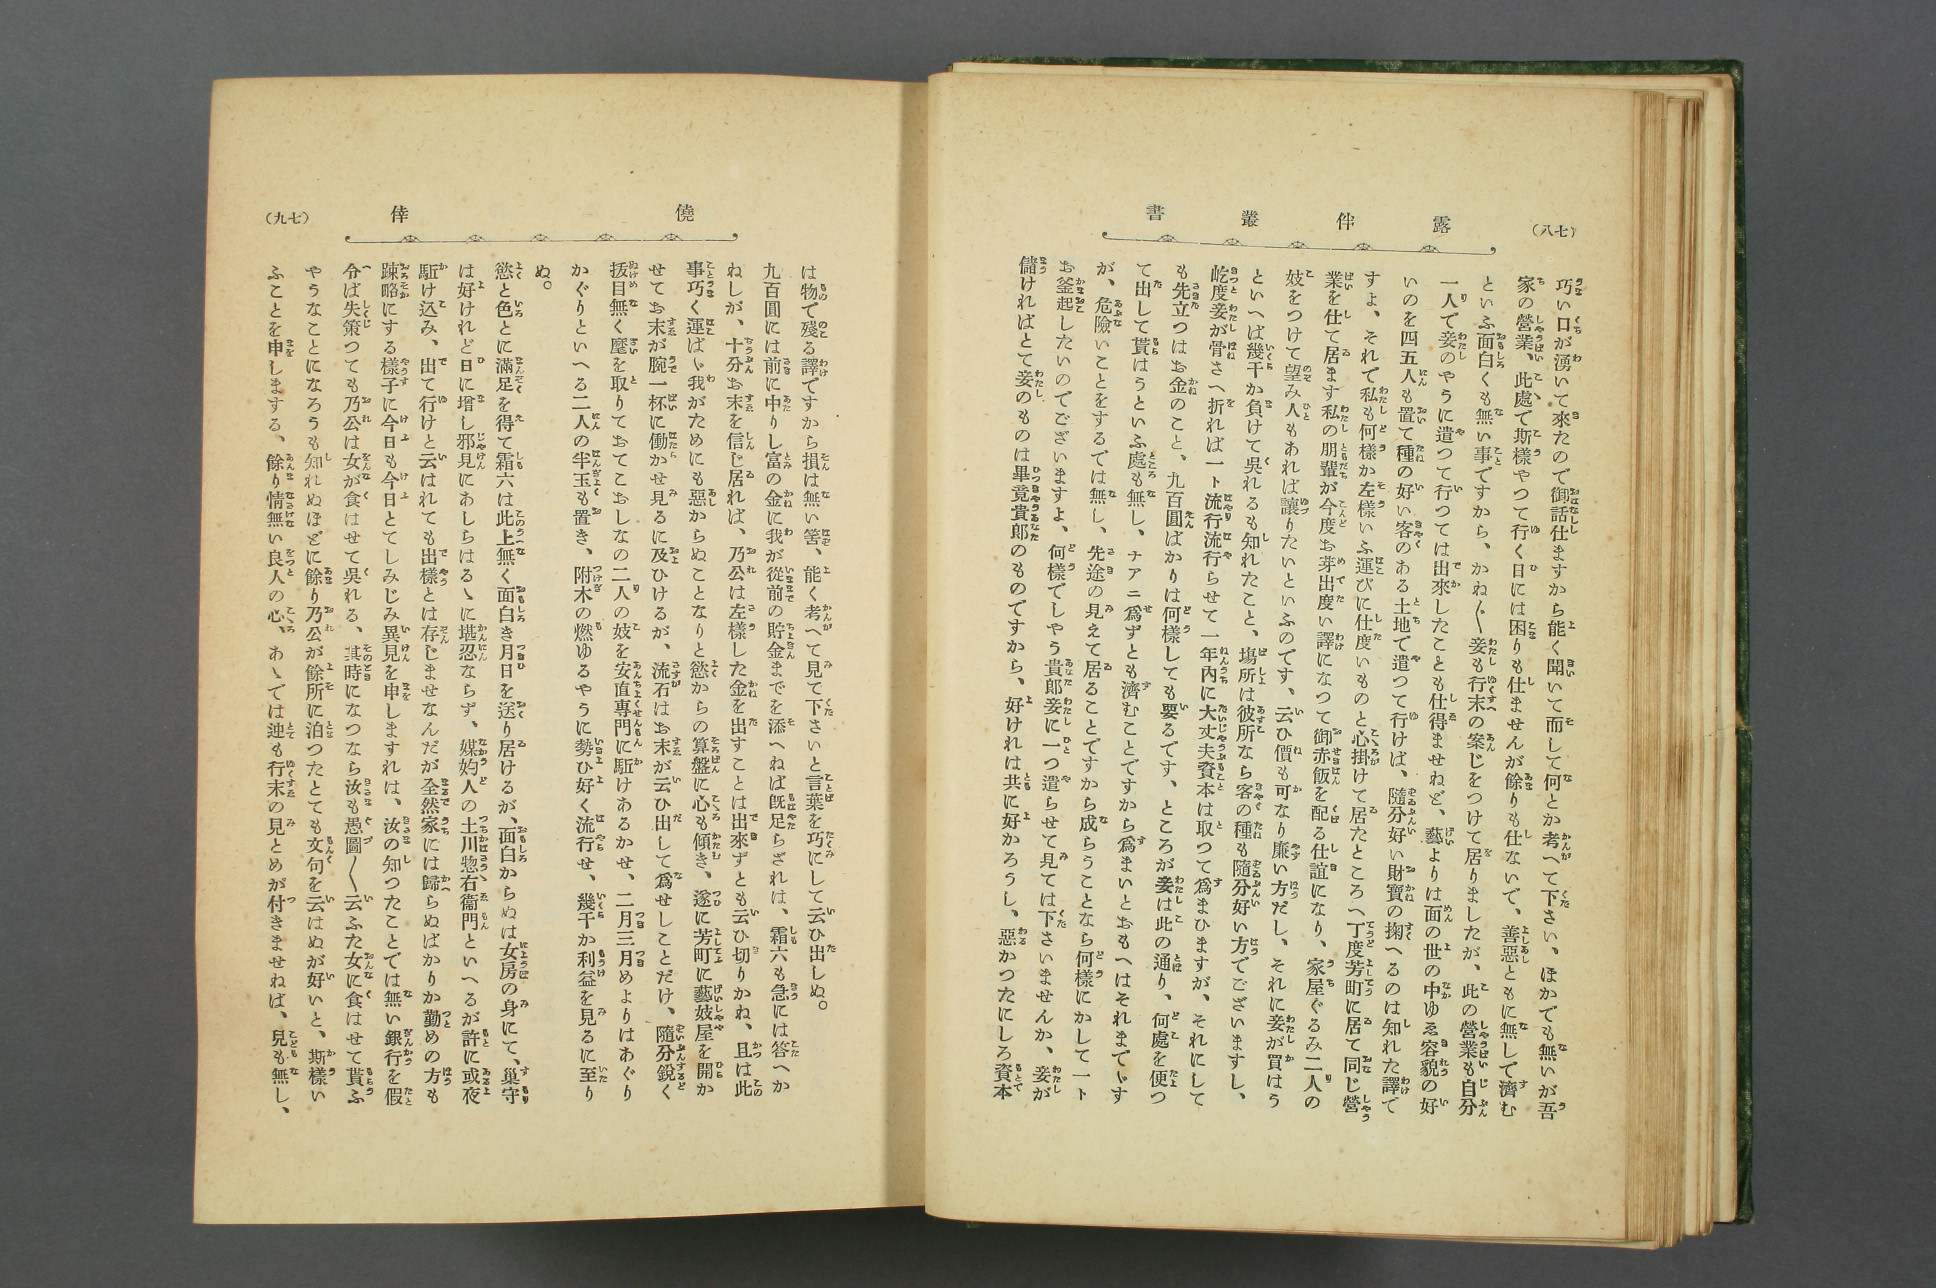 (七八)
露伴叢書
巧い口が湧いて來たので御話仕ますから能く聞いて而して何とか考へて下さい、ほかでも無いが吾
家の營業、此處で斯樣やつて行く日には困りも仕ませんが餘りも仕ないで、善惡ともに無して濟む
といふ面白くも無い事ですから、かね〴〵妾も行末の案じをつけて居りましたが、此の營業も自分
一人で妾のやうに遣つて行つては出來したことも仕得ませねど、藝よりは面の世の中ゆゑ容貌の好
いのを四五人も置て種の好い客のある土地で遣つて行けば、隨分好い財寶の掬へるのは知れた譯で
すよ、それで私も何樣か左樣いふ運びに仕度いものと心掛けて居たところへ丁度芳町に居て同じ營
業を仕て居ます私の朋輩が今度お芽出度い譯になつて御赤飯を配る仕誼になり、家屋ぐるみ二人の
妓をつけて望み人もあれば讓りたいといふのです、云ひ價も可なり廉い方だし、それに妾が買はう
といへば幾干か負けて吳れるも知れたこと、塲所は彼所なら客の種も隨分好い方でございますし、
屹度妾が骨さへ折れば一ト流行流行らせて一年內に大丈夫資本は取つて爲まひますが、それにして
も先立つはお金のこと、九百圓ばかりは何樣しても要るです、ところが妾は此の通り、何處を便つ
て出して貰はうといふ處も無し、ナアニ爲ずとも濟むことですから爲まいとおもへばそれまでゞす
が、危險いことをするでは無し、先途の見えて居ることですから成らうことなら何樣にかして一ト
お釜起したいのでございますよ、何樣でしやう貴郞妾に一つ遣らせて見ては下さいませんか、妾が
儲ければとて妾のものは畢竟貴郞のものですから、好ければ共に好かろうし、惡かつたにしろ資本
僥倖
(七九)
は物で殘る譯ですから損は無い筈、能く考へて見て下さいと言葉を巧にして云ひ出しぬ。
九百圓には前に中りし富の金に我が從前の貯金までを添へねば旣足らざれは、霜六も急には答へか
ねしが、十分お末を信じ居れば、乃公は左樣した金を出すことは出來ずとも云ひ切りかね、且は此
事巧く運ばゞ我がためにも惡からぬことなりと慾からの算盤に心も傾き、遂に芳町に藝妓屋を開か
せてお末が腕一杯に働かせ見るに及ひけるが、流石はお末が云ひ出して爲せしことだけ、隨分銳く
拔目無く麾を取りておてこおしなの二人の妓を安直專門に駈けあるかせ、二月三月めよりはあぐり
かぐりといへる二人の半玉も置き、附木の燃ゆるやうに勢ひ好く流行せ、幾干か利益を見るに至り
ぬ。
慾と色とに滿足を得て霜六は此上無く面白き月日を送り居けるが、面白からぬは女房の身にて、巢守
は好けれど日に增し邪見にあしらはるゝに堪忍ならず、媒妁人の土川惣右衞門といへるが許に或夜
駈け込み、出て行けと云はれても出樣とは存じませなんだが全然家には歸らぬばかりか勤めの方も
踈略にする樣子に今日も今日とてしみじみ異見を申しますれは、汝の知つたことでは無い銀行を假
令ば失策つても乃公は女が食はせて吳れる、其時になつなら汝も愚圖〳〵云ふた女に食はせて貰ふ
やうなことになろうも知れぬほどに餘り乃公が餘所に泊つたとても文句を云はぬが好いと、斯樣い
ふことを申しまする、餘り情無い良人の心、あゝでは迚も行末の見とめが付きませねば、兒も無し、